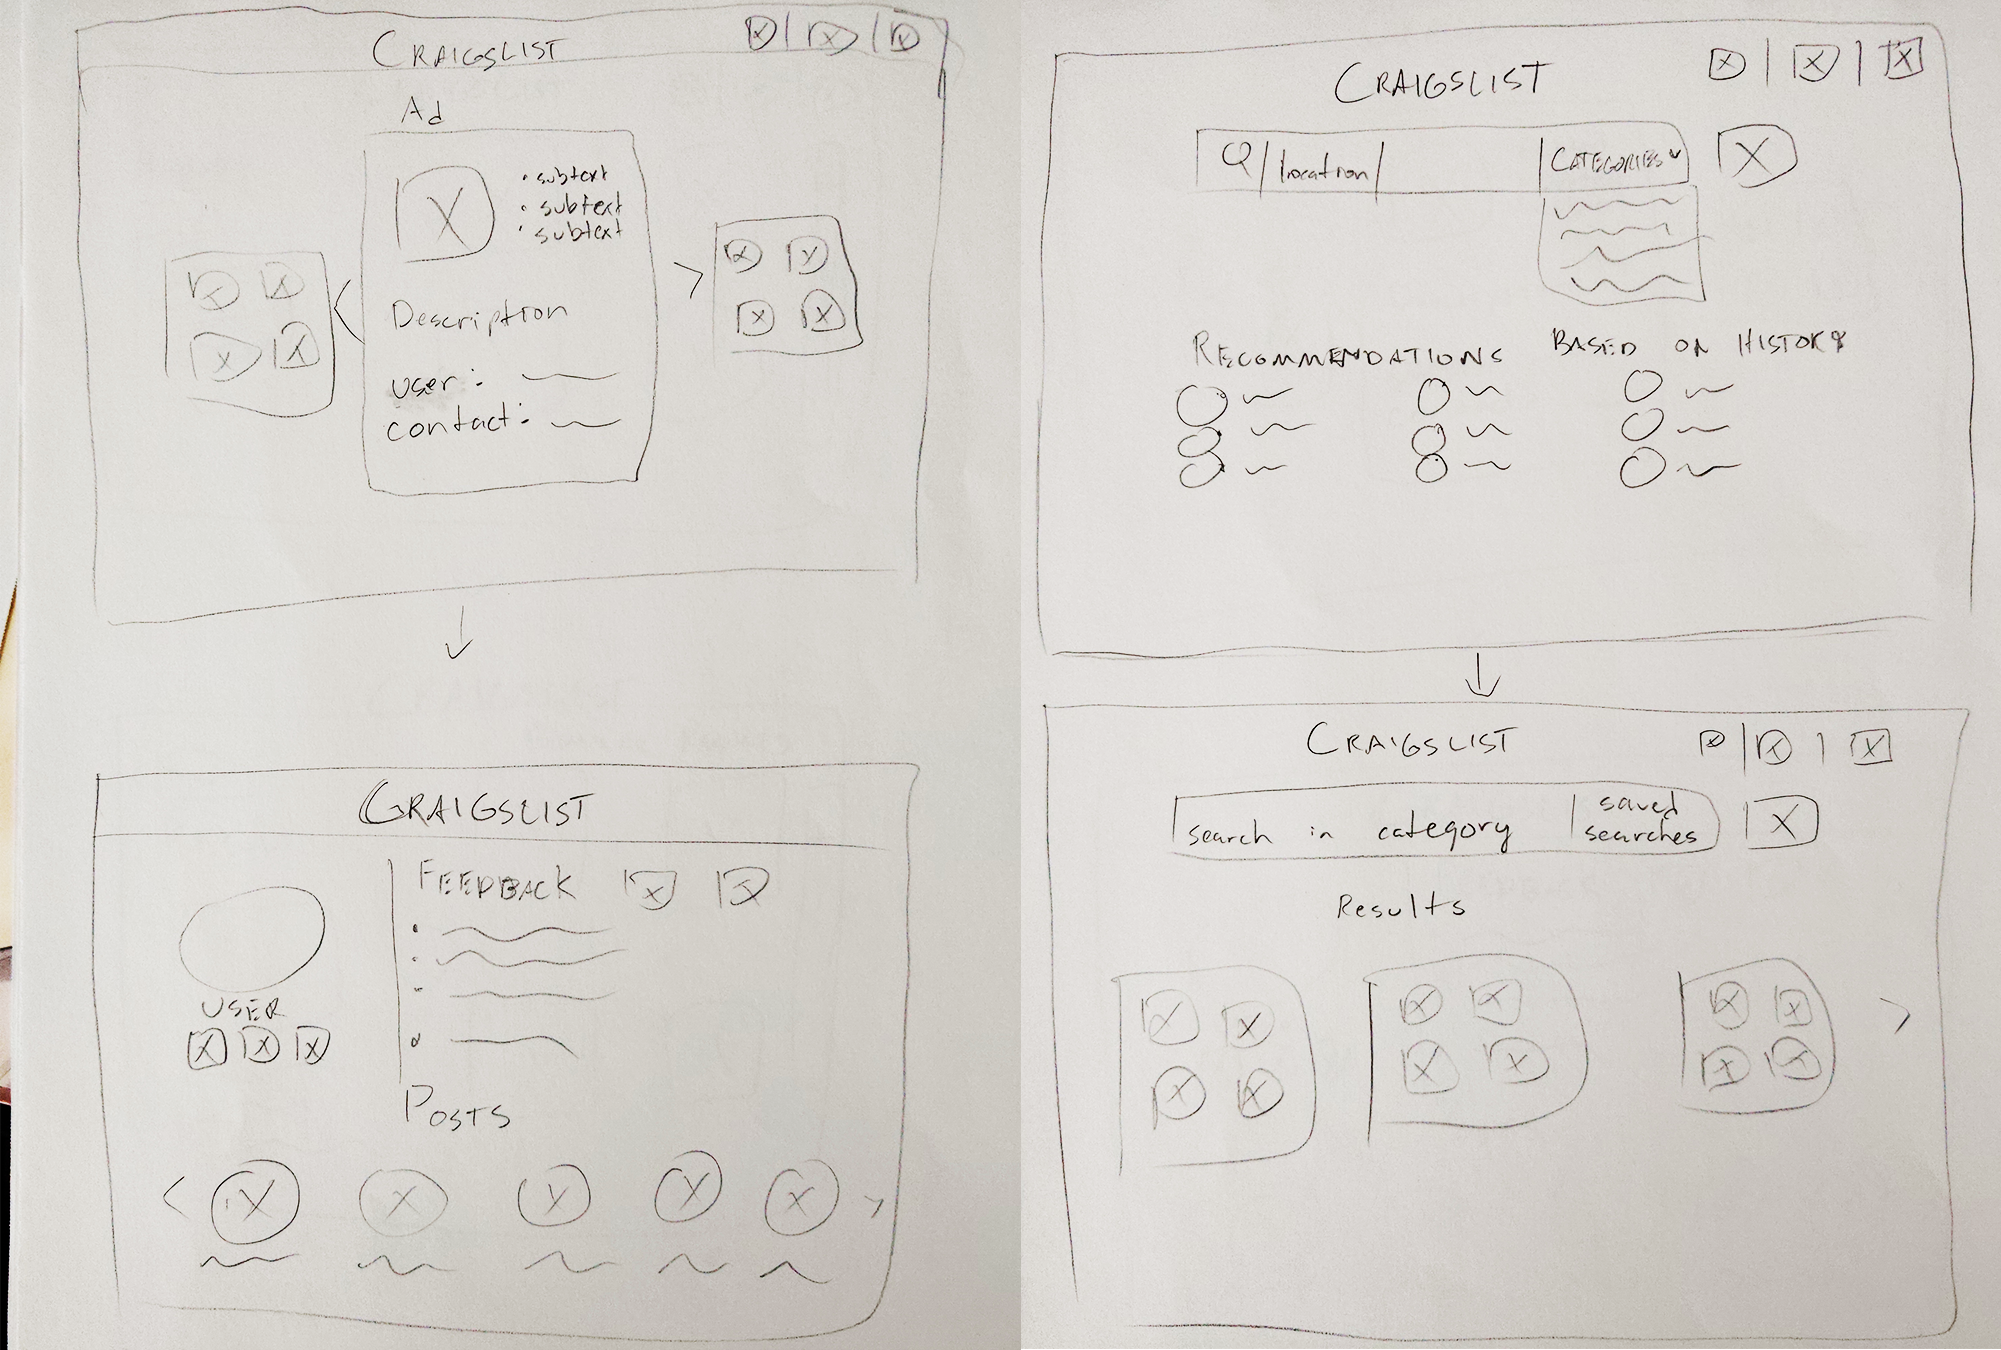 CRAIGSLIST
Ad
• subtext
• subtext
• subtext
Description
user:
contact:
CRAIGSLIST
FEEDBACK
USER
POSTS
CRAIGSLIST
location
CATEGORIES
RECOMMENDATIONS BASED ON HISTORY
CRAIGSLIST
search in category
saved
searches
Results